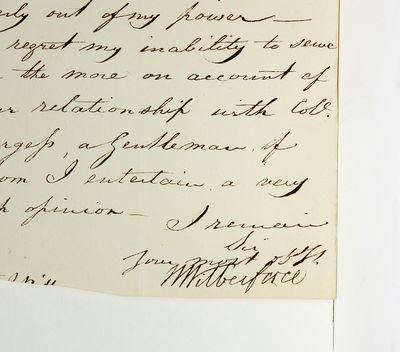 out of my power —
regret my inability to serve
the more on account of
relationship with Col.
a Gentleman, of
I entertain a very
opinion — I remain
Sir
Your most obt.
W Wilberforce